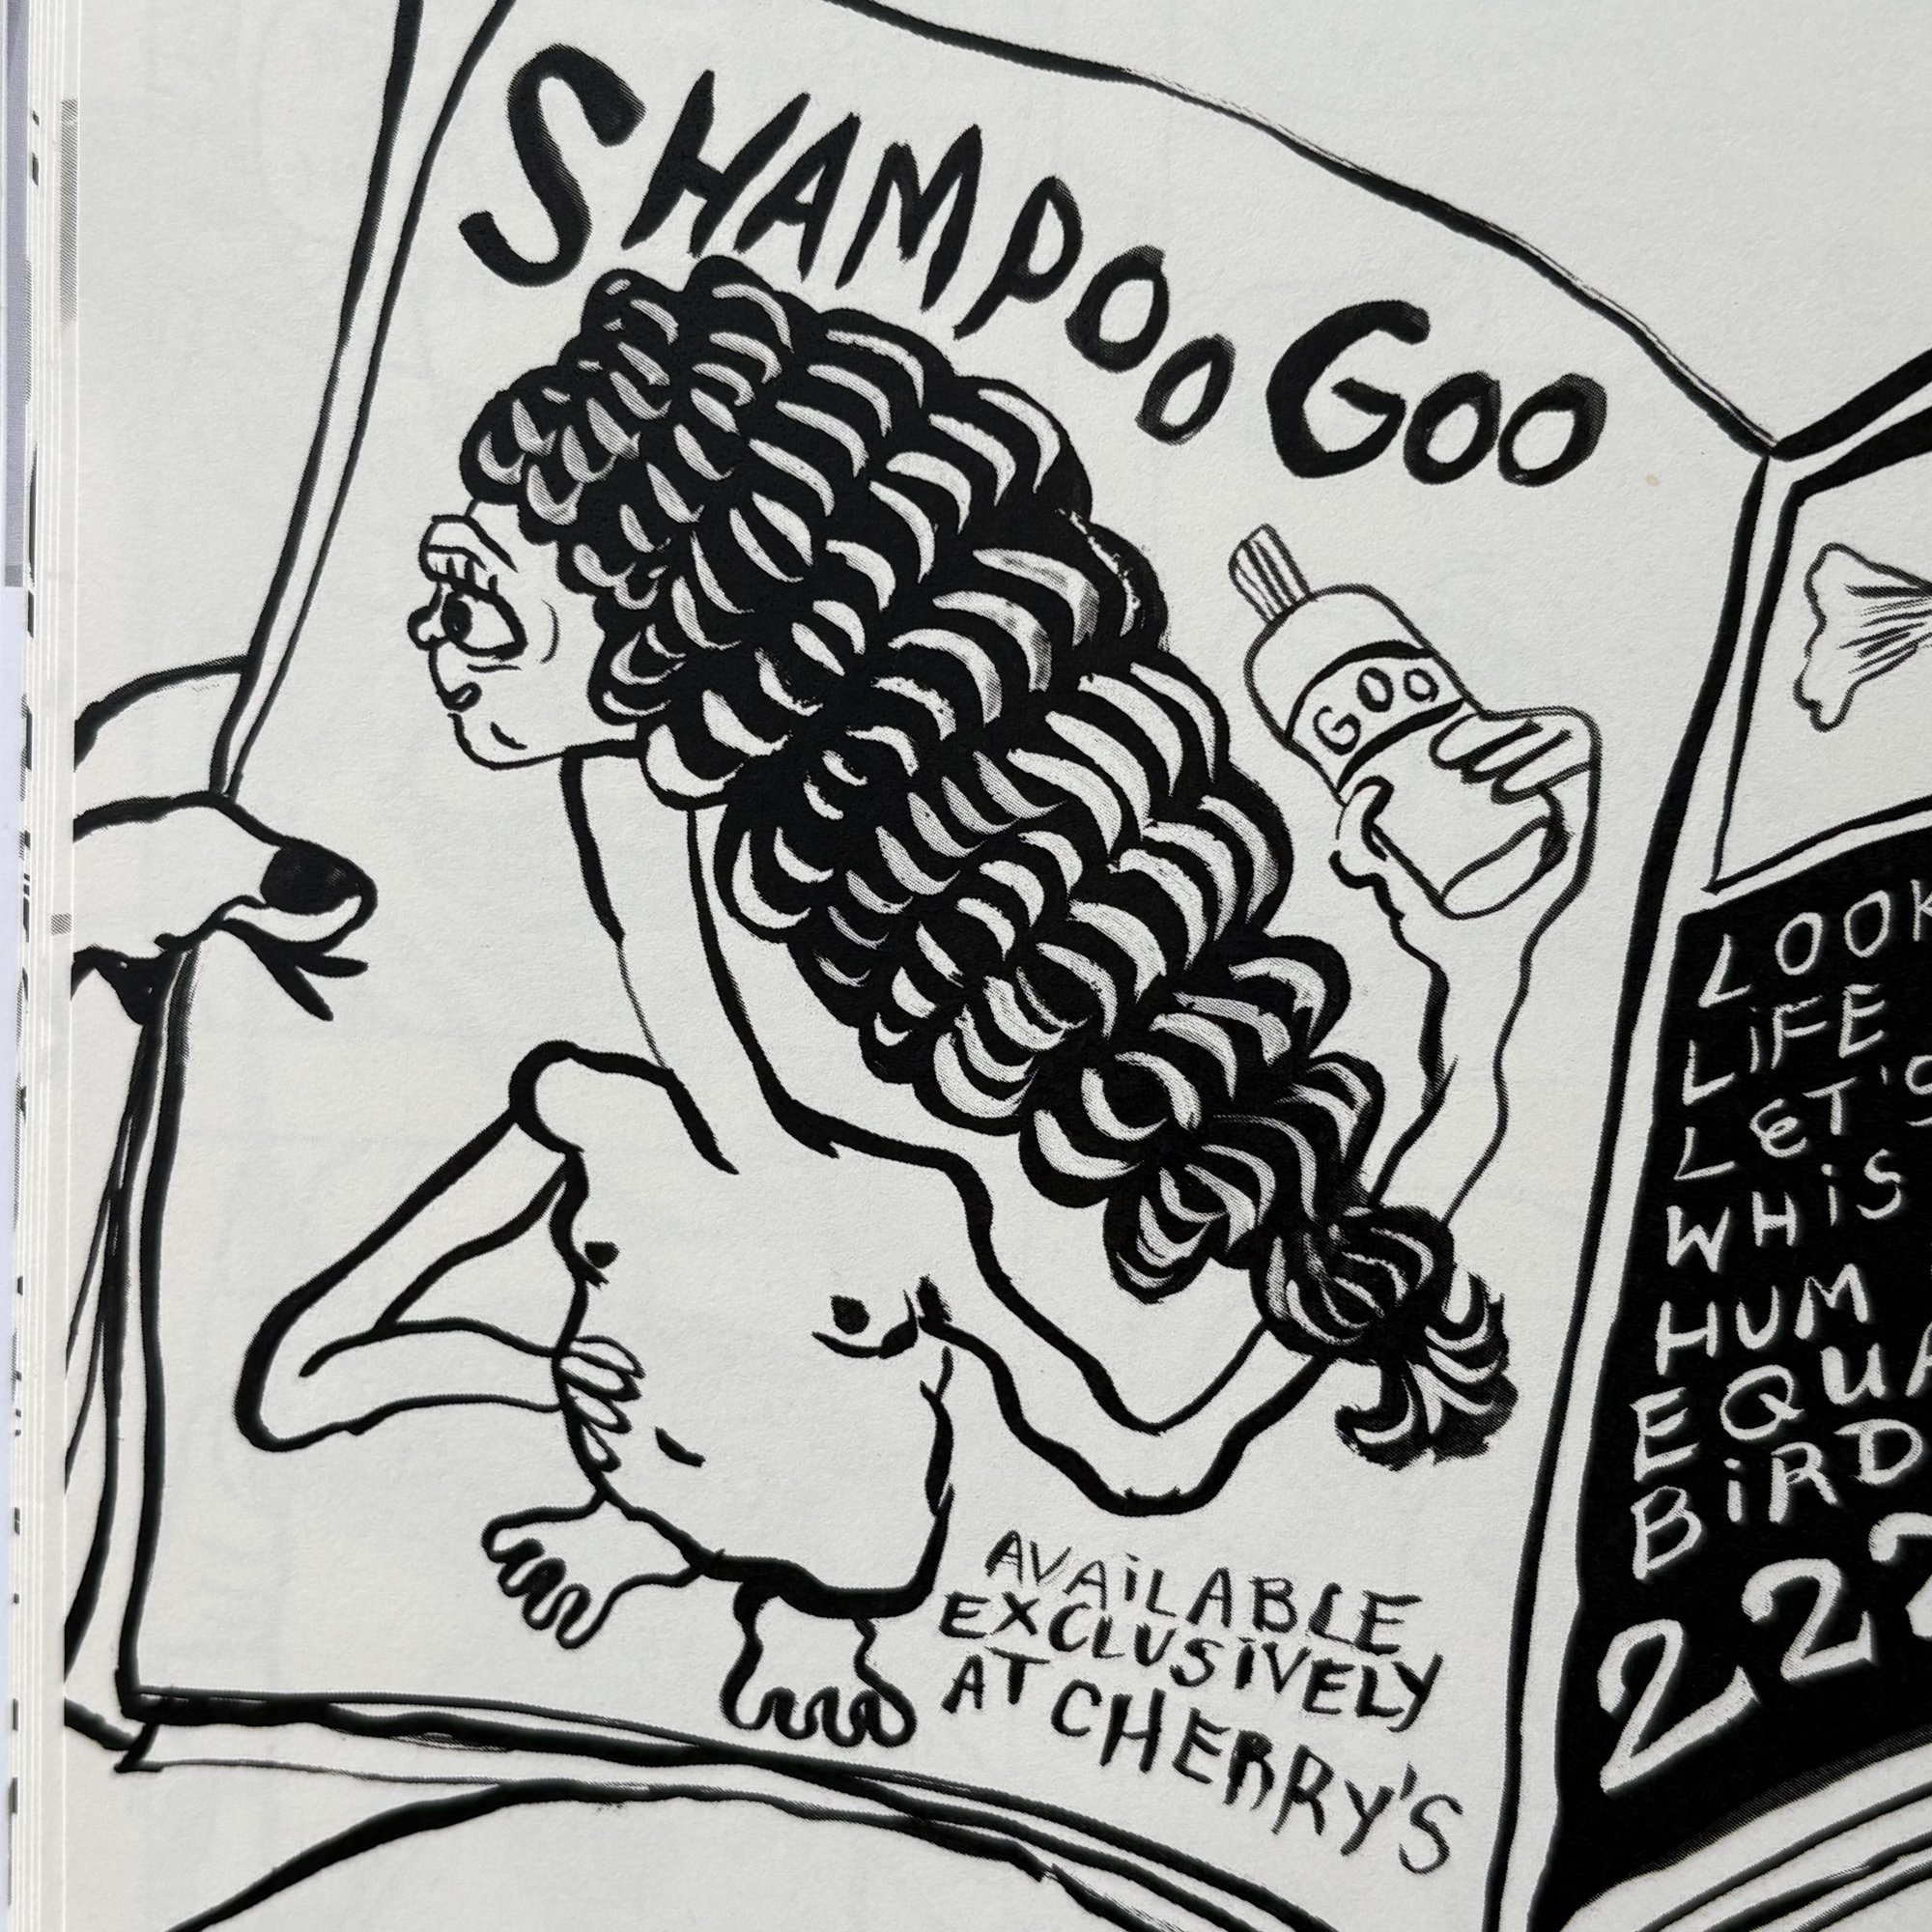 SHAMPOO GOO
GOO
AVAiLABLE
EXCLUSiVELY
AT CHERRY'S
LOOK
LiFE
LET'S
WHiS
HUM
EQUA
BiRD
22